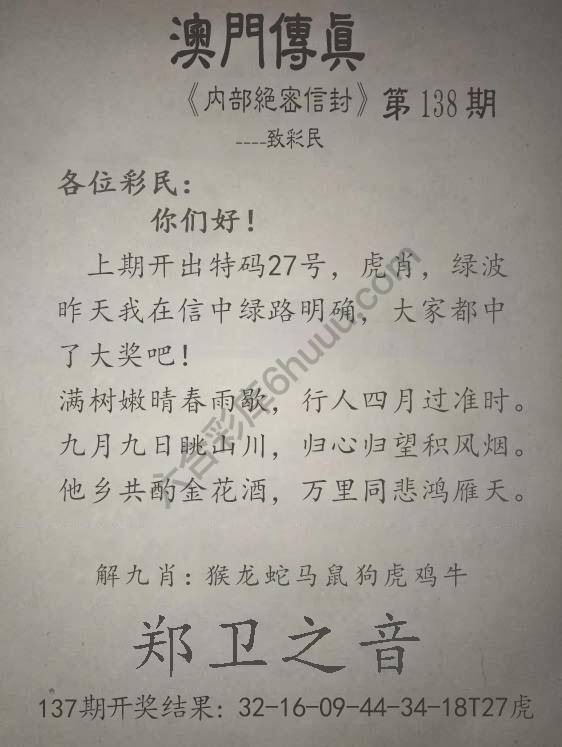 澳門傳眞
《内部絕密信封》第138期
----致彩民
各位彩民：
你们好！
上期开出特码27号，虎肖，绿波
昨天我在信中绿路明确，大家都中
了大奖吧！
满树嫩晴春雨歇，行人四月过准时。
九月九日眺山川，归心归望积风烟。
他乡共酌金花酒，万里同悲鸿雁天。
解九肖：猴龙蛇马鼠狗虎鸡牛
郑卫之音
137期开奖结果：32-16-09-44-34-18T27虎
六合彩库6huuu.com